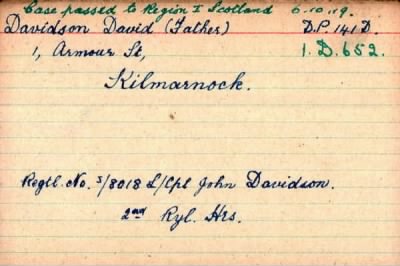 Case passed to Region I Scotland 6.10.19.
Davidson David (Father) D.P. 141 D.
1, Armour St, 1. D. 652.
Kilmarnock.
Regtl. No. S/8018 L/Cpl John Davidson.
2nd Ryl. Hrs.